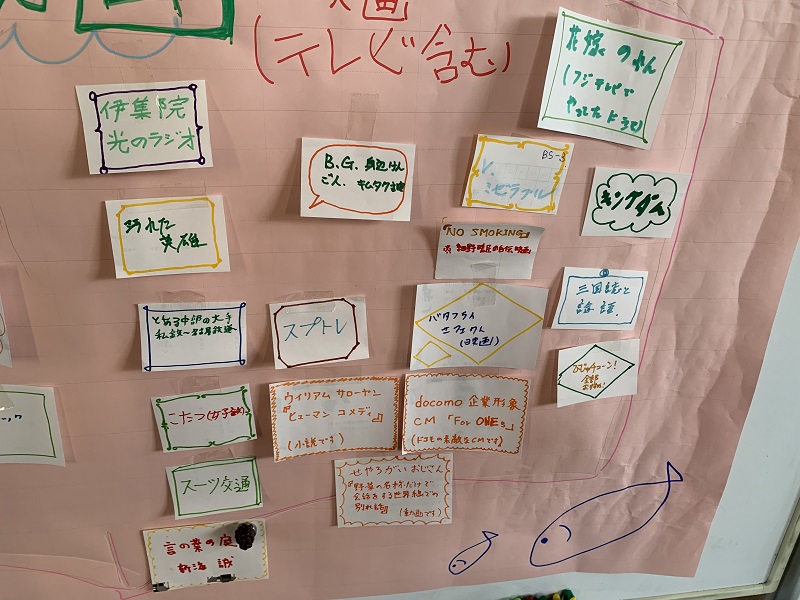 (テレビ含む)
花嫁のれん
(フジテレビで
やってたドラマ)
伊集院
光のラジオ
B.G. 身辺けい
ごん. キムタク主演
BS-3
レ.
ミゼラブル
キングダム
汚れた
英雄
『NO SMOKING』
細野晴臣の自伝映画
三国志と
論語.
とある中部の大手
私鉄〜名古屋鉄道
スプトレ
バタフライ
エフェクト
(映画)
こたつ(女子会)
ウイリアム サローヤン
『ヒューマン コメディ』
(小説です)
docomo 企業形象
CM 「For ONEs」
(ドコモの素敵なCMです)
ック
スーツ交通
せやろがいおじさん
『野菜の名称だけで
会話をする世界線での
別れ話』 (動画です)
言の葉の庭
新海 誠